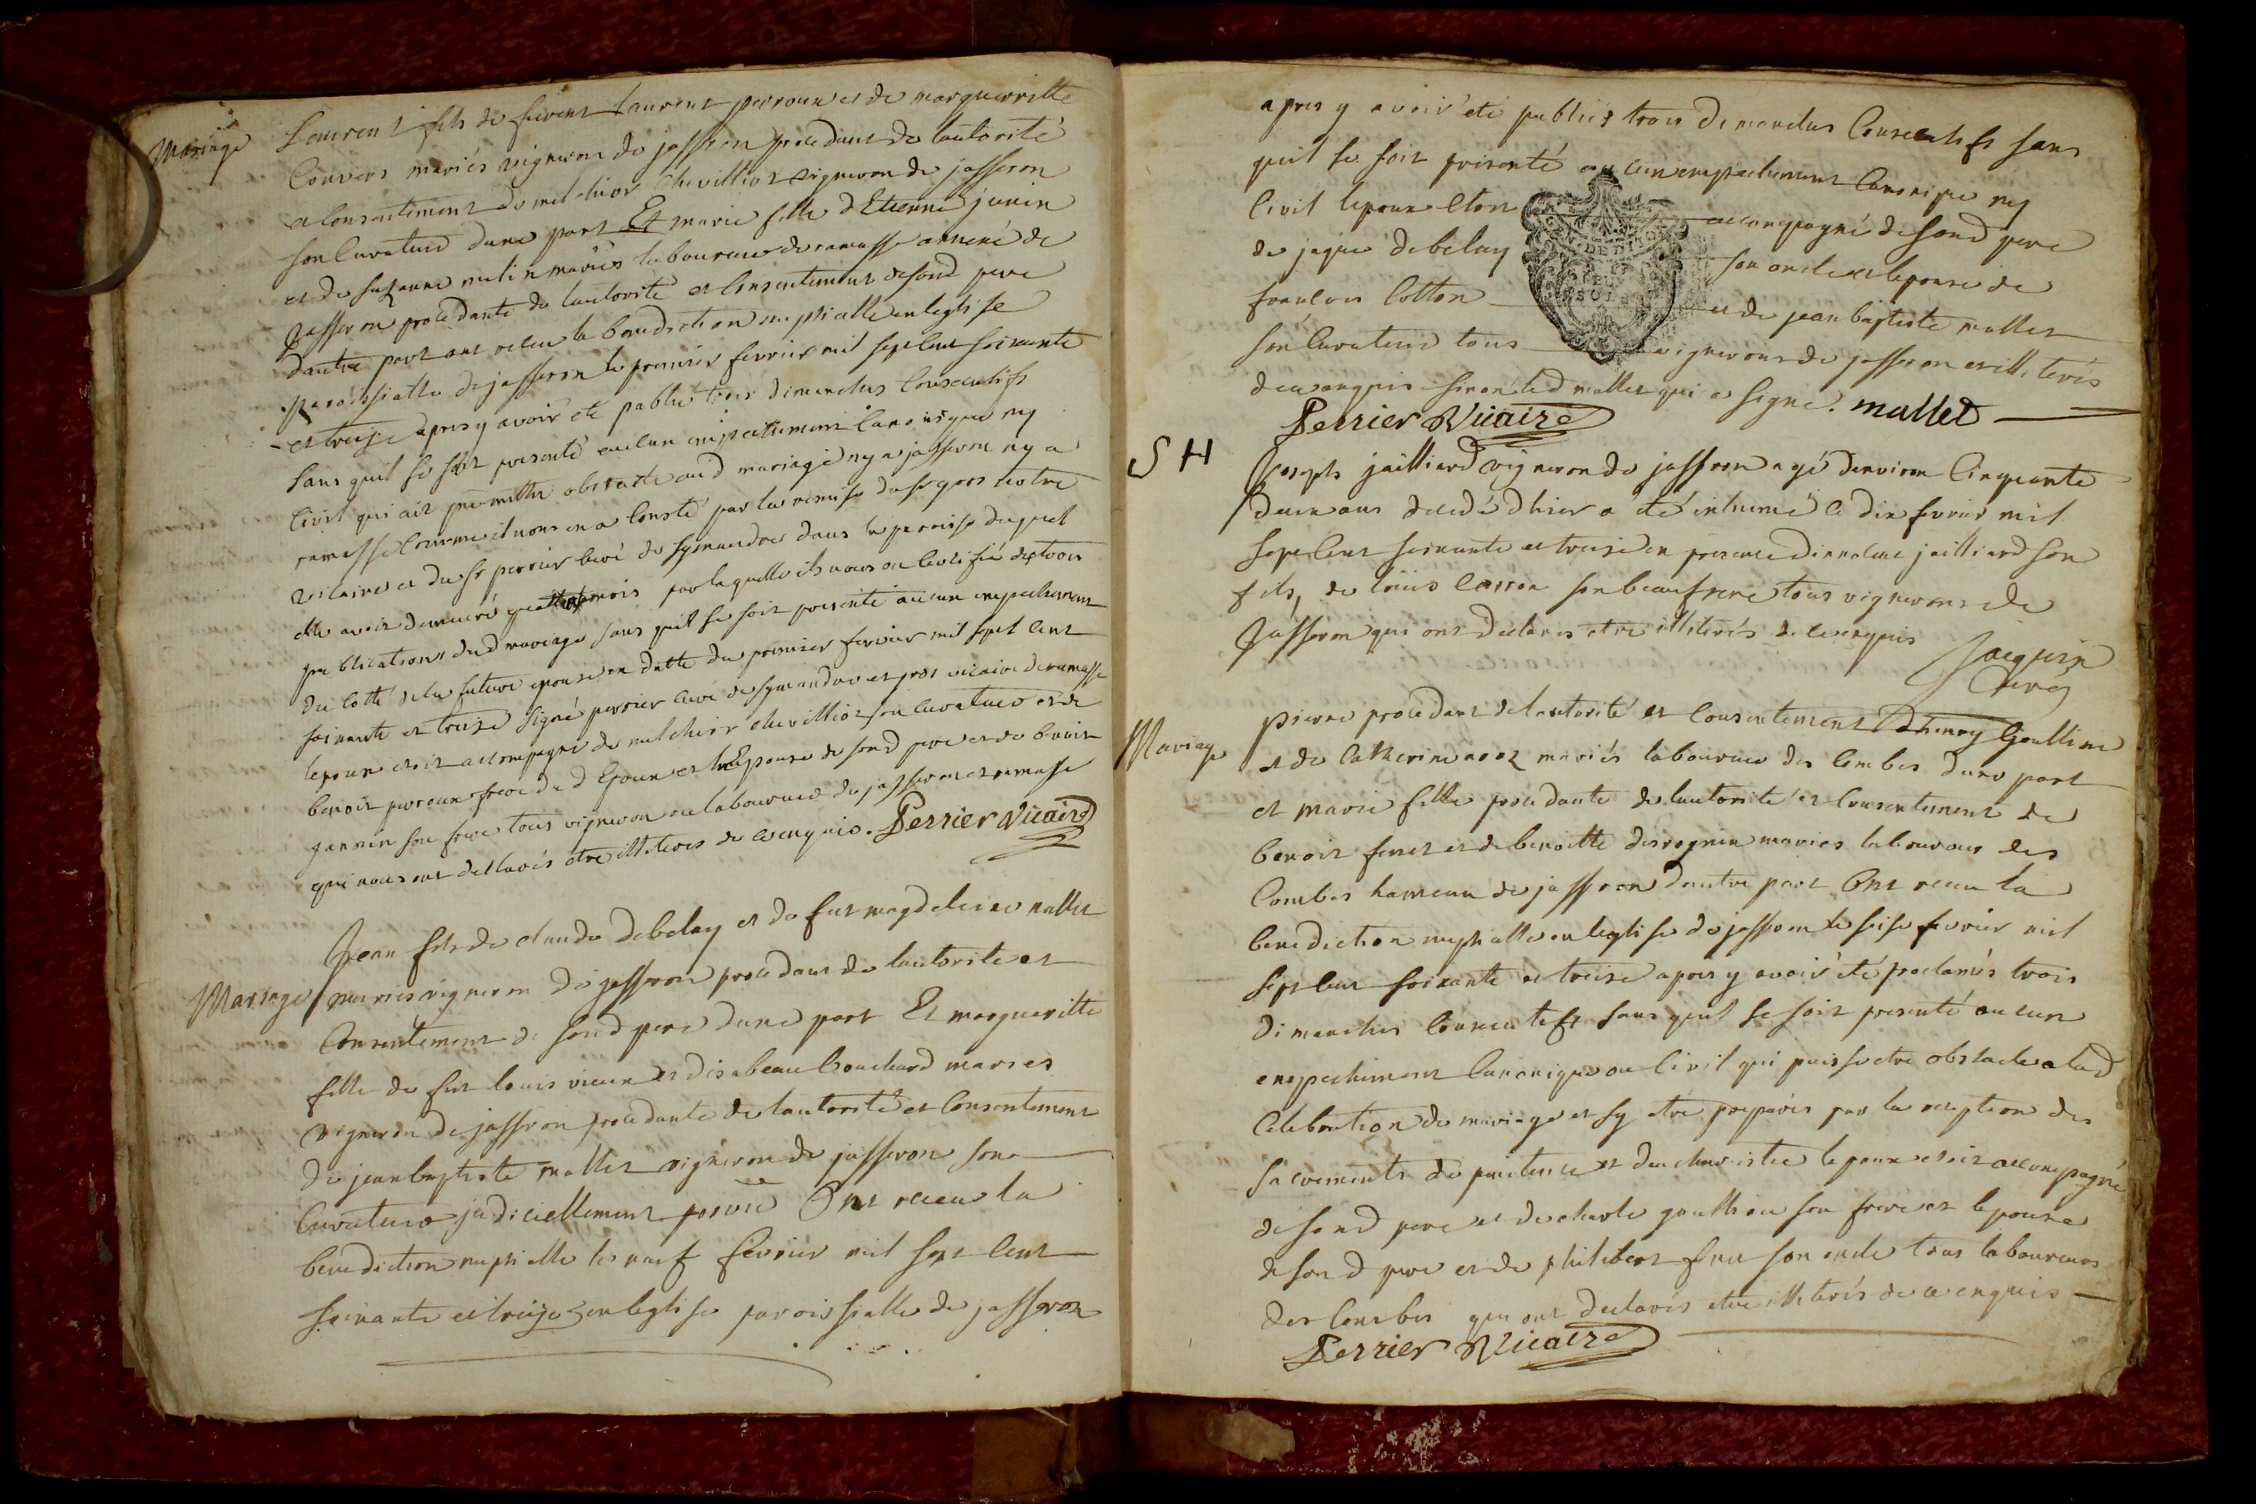 Mariage
Laurent fils de furent Laurent perroux et de marguerritte
Convers mariés vigneron de jasseron procedant de lautorité
et Consentement de melchior Chevilliot vigneron de jasseron
son Curateur dune part Et marie fille d'Etienne janin
et de suzanne mariés laboureur de ramasse annexe de
jasseron procedante de lautorité et Consentement de sond pere
dautre part ont receu la benediction nuptialle en leglise
paroissialle de jasseron le premier fevrier mil sept cent soixante
et treize apres y avoir eté publié trois dimanches Consecutifs
sans quil se soit presenté aucun empechement Canonique ny
Civil qui ait pu mettre obstacle aud mariage ny a jasseron ny a
ramasse Comme il nous en a Consté par la remise du sr gros notre
vicaire et du sr perrier Curé de symandre dans la paroisse duquel
elle avoit demeuré mois par laquelle ils nous ont Certifié des trois
publications dud mariage sans quil se soit presenté aucun empechement
du Cotté de la future epouse en datte du premier fevrier mil sept cent
soixante et treize signé perrier Curé de symandre et gros vicaire de ramasse
lepoux etoit accompagné de melchior chevilliot son Curateur et de
benoit perroux frere dud Epoux et l'Epouse de sond pere et de benoit
jannin son frere tous vigneron ou laboureur de jasseron et ramasse
qui nous ont declarés etre illiterés de ce enquis. Perrier Vicaire
Mariage
Jean fils de claude debelay et de fut magdeleine mallet
mariés vigneron de jasseron procedant de lautorité et
Consentement de sond pere dune part Et marguerritte
fille de fut louis vieux et disabeau bouchard maries
vigneron de jasseron procedante de lautorité et Consentement
de jean baptiste mallet vigneron de jasseron son
Curateur judiciellement Ont receu la
benediction nuptialle le neuf fevrier mil sept Cent
soixante et treize en leglise paroissialle de jasseron
apres y avoir eté publiés trois dimanches Consecutifs sans
quil se soit presenté aucun empechement Canonique ny
Civil lepoux etoit accompagné de sond pere
de jaque debelay son oncle et lepouse de
francois Cotton et de jean baptiste mallet
son Curateur tous vignerons de jasseron et illiterés
de ce enquis sinon led mallet qui a signé. mallet
Perrier Vicaire
S H
Joseph jailliard vigneron de jasseron agé denviron Cinquante
deux ans decedé d'hier a été inhumé le dix fevrier mil
sept cent soixante et treize en presence jailliard son
fils, de louis Carron son beaufrere tous vignerons de
Jasseron qui ont declarés etre illiterés de ce enquis
Jacquin
Curé
Mariage
Pierre procedant de lautorité et Consentement Goullion
et de Catherine mariés laboureur des Combes dune part
et marie fille procedante de lautorité et Consentement de
benoit feret et de benoitte desvignes mariés laboureur des
Combes hameau de jasseron dautre part Ont receu la
benediction nuptialle en leglise de jasseron le seise fevrier mil
sept cent soixante et treise apres y avoir été proclamés trois
dimanches Consecutifs sans quil se soit presenté aucun
empechement Canonique ou Civil qui puisse etre obstacle a lad
Celebration de mariage et sy etre preparés par la reception des
sacrements de penitence et deucharistie lepoux etoit accompagné
de sond pere et de charle goullion son frere et lepouse
de sond pere et de philibert son oncle tous laboureurs
des Combes qui ont declarés etre illiterés de ce enquis
Perrier Vicaire